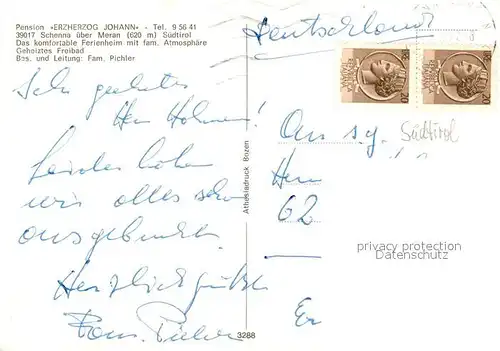 Pension «ERZHERZOG JOHANN» - Tel. 9 56 41
39017 Schenna über Meran (620 m) Südtirol
Das komfortable Ferienheim mit fam. Atmosphäre
Geheiztes Freibad
Bes. und Leitung: Fam. Pichler
Deutschland
Südtirol
Sehr geehrter
Herr
Leider haben
wir alles schon
ausgebucht.
Herzlich grüßt
Fam. Pichler
Athesiadruck Brixen
3288
Herrn
62
privacy protection
Datenschutz